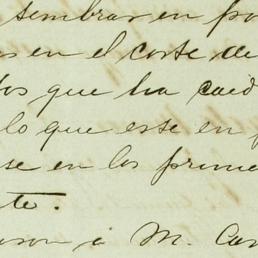 sembrar en po
s en el corte de
tos que ha caid
lo que este en p
se en los prime
te.
ison á M. Car